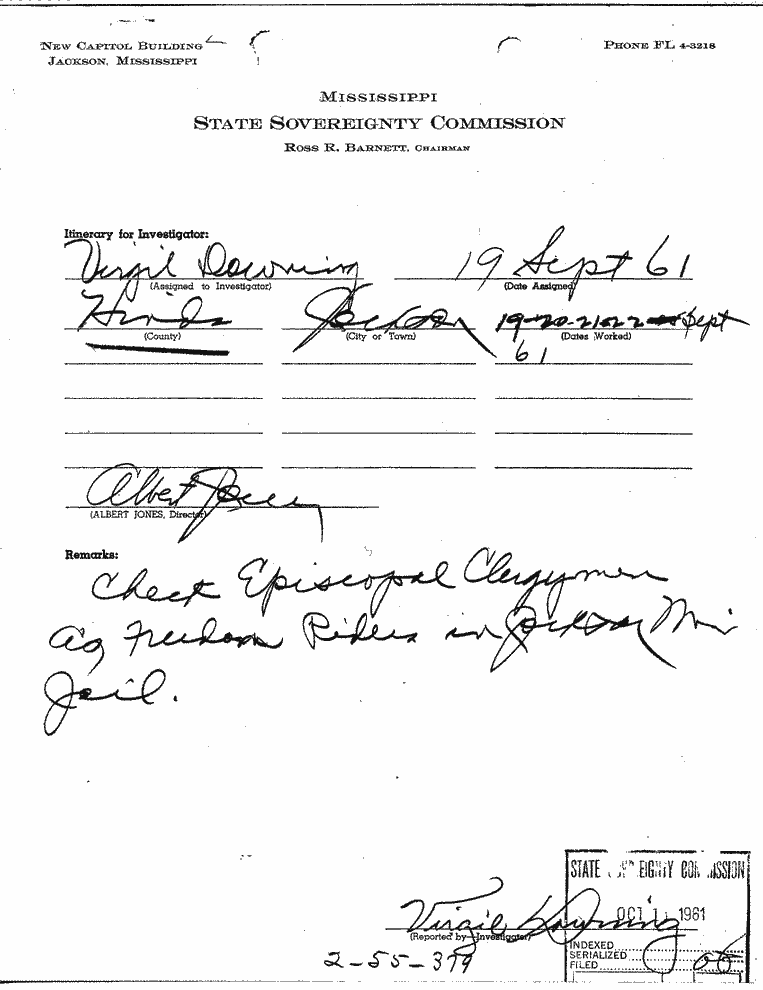 NEW CAPITOL BUILDING
JACKSON, MISSISSIPPI
PHONE FL 4-3218
MISSISSIPPI
STATE SOVEREIGNTY COMMISSION
ROSS R. BARNETT, CHAIRMAN
Itinerary for Investigator:
Virgil Downing 19 Sept 61
(Assigned to Investigator) (Date Assigned)
Hinds Jackson 19-20-21-22 Sept
(County) (City or Town) (Dates Worked)
61
Albert Jones
(ALBERT JONES, Director)
Remarks:
Check Episcopal Clergymen
as Freedom Riders in Jackson Miss
Jail.
STATE SOVEREIGNTY COMMISSION
Virgil Downing
OCT 1961
(Reported by Investigator)
INDEXED
SERIALIZED
FILED
2-55-379